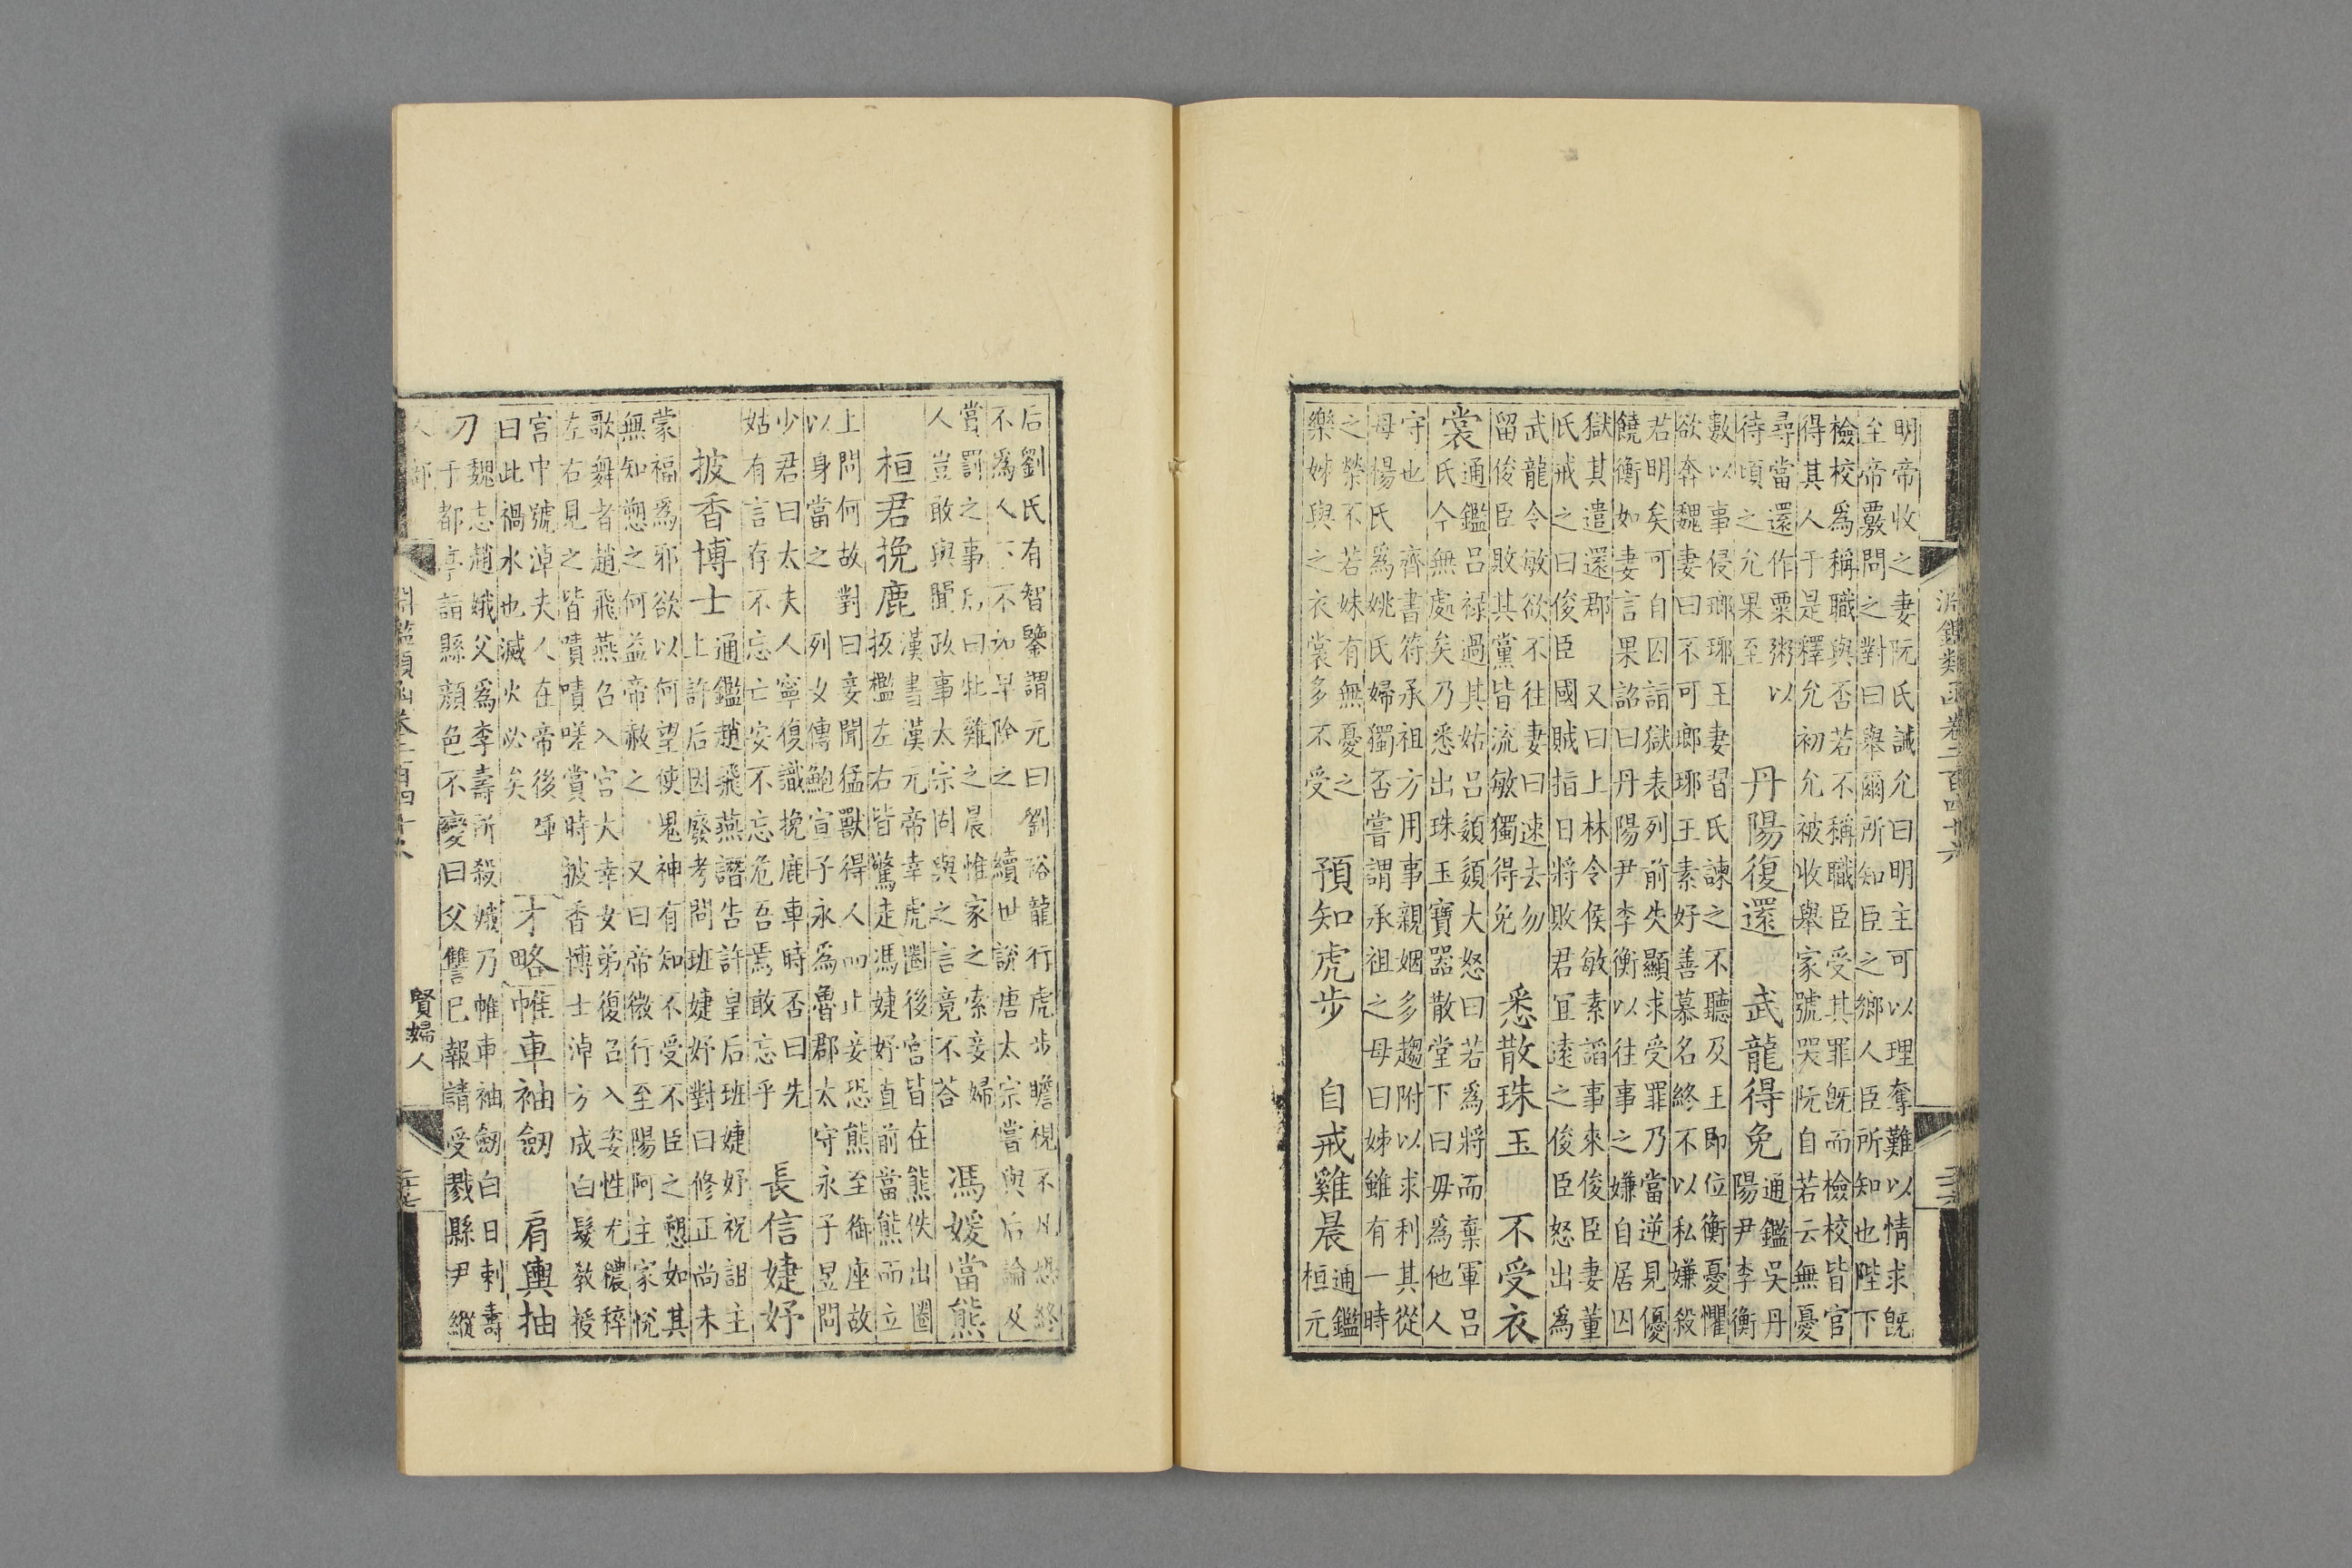 淵鑑類函卷二百四十六
明帝收之妻阮氏誡允曰明主可以理奪難以情求既
至帝覈問之對曰舉爾所知臣之鄉人臣所知也陛下
檢校爲稱職與否若不稱職臣受其罪既而檢校皆官
得其人于是釋允初允被收舉家號哭阮自若云無憂
尋當還作粟粥以
待頃之允果至
丹陽復還 武龍得免
通鑑吳丹
陽尹李衡
數以事侵瑯琊王妻習氏諫之不聽及王即位衡憂懼
欲奔魏妻曰不可瑯琊王素好善慕名終不以私嫌殺
若明矣可自囚詣獄表列前失顯求受罪乃當逆見優
饒衡如妻言果詔曰丹陽尹李衡以往事之嫌自居囚
獄其遣還郡 又曰上林令侯敏素諂事來俊臣妻董
氏戒之曰俊臣國賊指日將敗君宜遠之俊臣怒出爲
武龍令敏欲不往妻曰速去勿
留俊臣敗其黨皆流敏獨得免
悉散珠玉 不受衣
裳
通鑑呂祿過其姑呂嬃嬃大怒曰若爲將而棄軍呂
氏今無處矣乃悉出珠玉寶器散堂下曰毋爲他人
守也 齊書符承祖方用事親姻多趨附以求利其從
母楊氏爲姚氏婦獨否嘗謂承祖之母曰姊雖有一時
之榮不若妹有無憂之
樂姊與之衣裳多不受
預知虎步 自戒雞晨
通鑑
桓元
后劉氏有智鑒謂元曰劉裕龍行虎步瞻視不凡恐終
不爲人下不如早除之 續世說唐太宗嘗與后論及
賞罰之事后曰牝雞之晨惟家之索妾婦
人豈敢與聞政事太宗固與之言竟不荅
馮媛當熊
桓君挽鹿
漢書漢元帝幸虎圈後宮皆在熊佚出圈
扳檻左右皆驚走馮婕妤直前當熊而立
上問何故對曰妾聞猛獸得人而止妾恐熊至御座故
以身當之 列女傳鮑宣子永爲魯郡太守永子昱問
少君曰太夫人寧復識挽鹿車時否曰先
姑有言存不忘亡安不忘危吾焉敢忘乎
長信婕妤
披香博士
通鑑趙飛燕譖告許皇后班婕妤祝詛主
上許后因廢考問班婕妤對曰修正尚未
蒙福爲邪欲以何望使鬼神有知不受不臣之愬如其
無知愬之何益帝赦之 又曰帝微行至陽阿主家悅
歌舞者趙飛燕召入宮大幸女弟復召入姿性尤醲粹
左右見之皆嘖嘖嗟賞時披香博士淖方成白髮教授
宮中號淖夫人在帝後唾
曰此禍水也滅火必矣
才略 帷車袖劒 肩輿抽
刀
魏志趙娥父爲李壽所殺娥乃帷車袖劒白日刺壽
于都亭詣縣顏色不變曰父讐已報請受戮縣尹縱
人部 淵鑑類函卷二百四十六 賢婦人 二十七